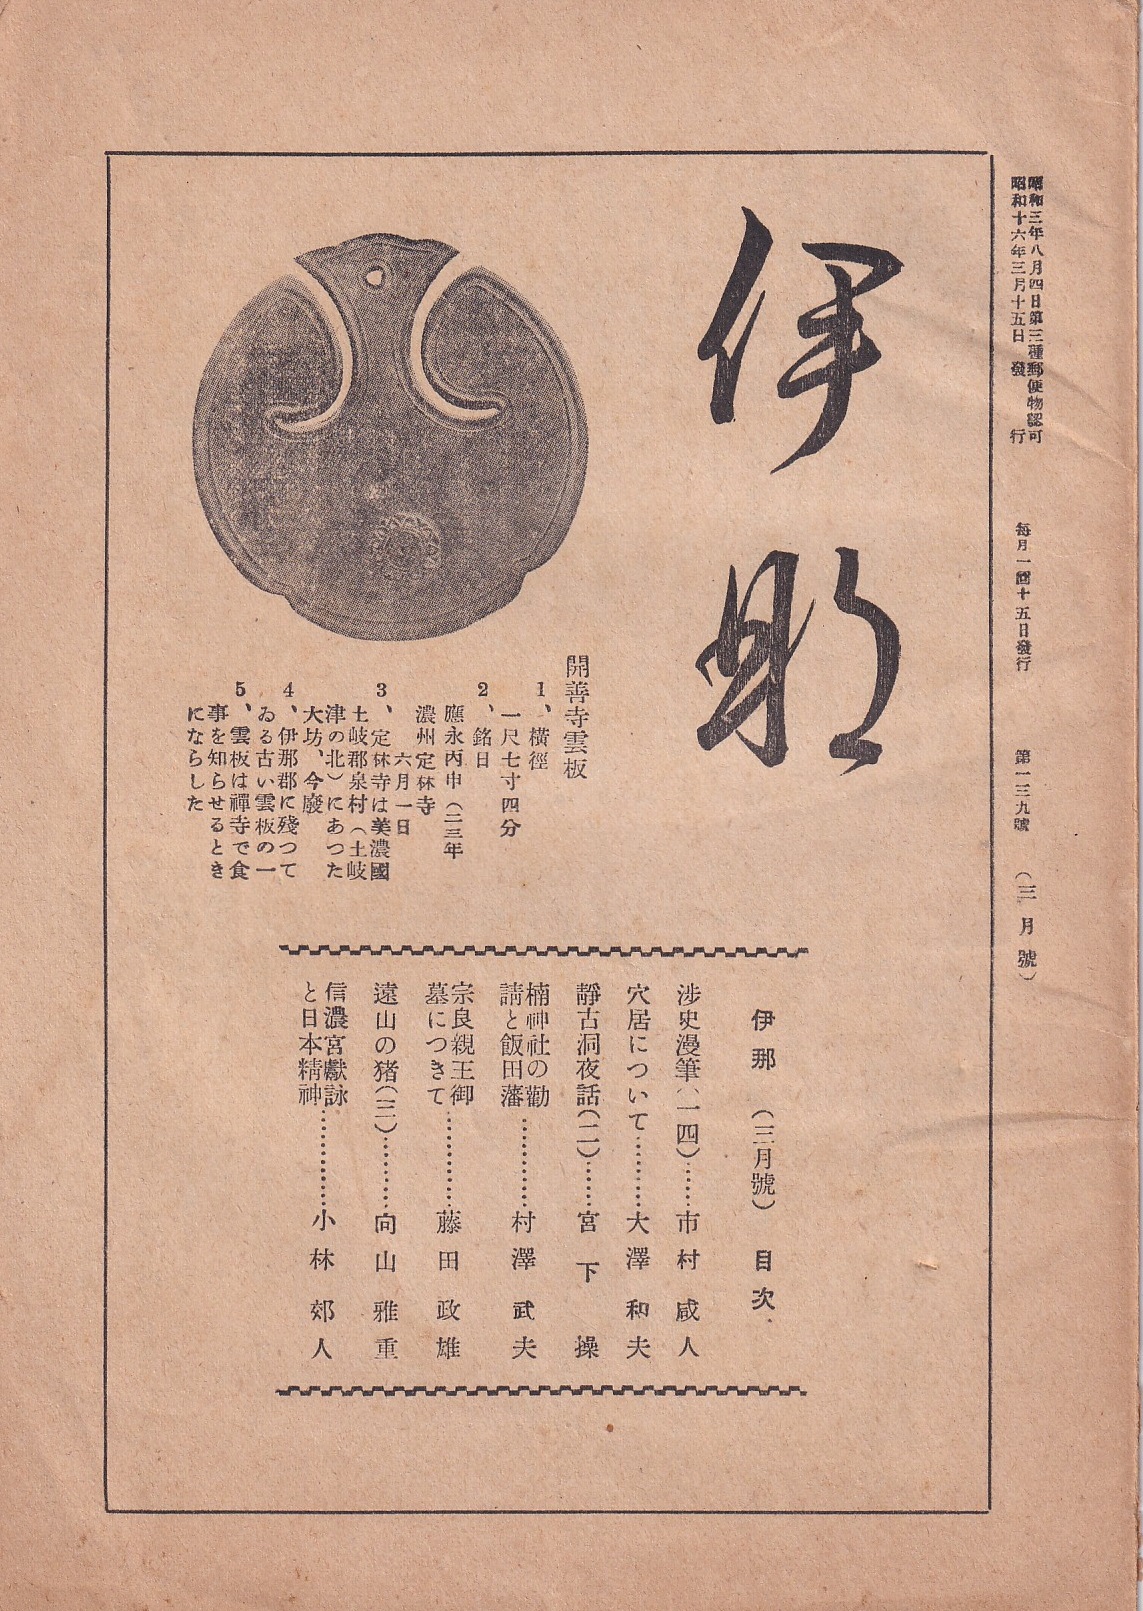 昭和三年八月四日第三種郵便物認可
昭和十六年三月十五日 發行
每月一回十五日發行
第一三九號
（三月號）
伊那
開善寺雲板
1、橫徑
一尺七寸四分
2、銘曰
應永丙申（二三年
六月一日
濃州定林寺
3、定林寺は美濃國
土岐郡泉村（土岐
津の北）にあつた
大坊、今廢
4、伊那郡に殘つて
ゐる古い雲板の一
5、雲板は禪寺で食
事を知らせるとき
にならした
伊那 （三月號） 目次
涉史漫筆（一四）……市村咸人
穴居について…………大澤和夫
靜古洞夜話（二）……宮下操
楠神社の勸
請と飯田藩…………村澤武夫
宗良親王御
墓につきて…………藤田政雄
遠山の猪（三）………向山雅重
信濃宮獻詠
と日本精神…………小林郊人